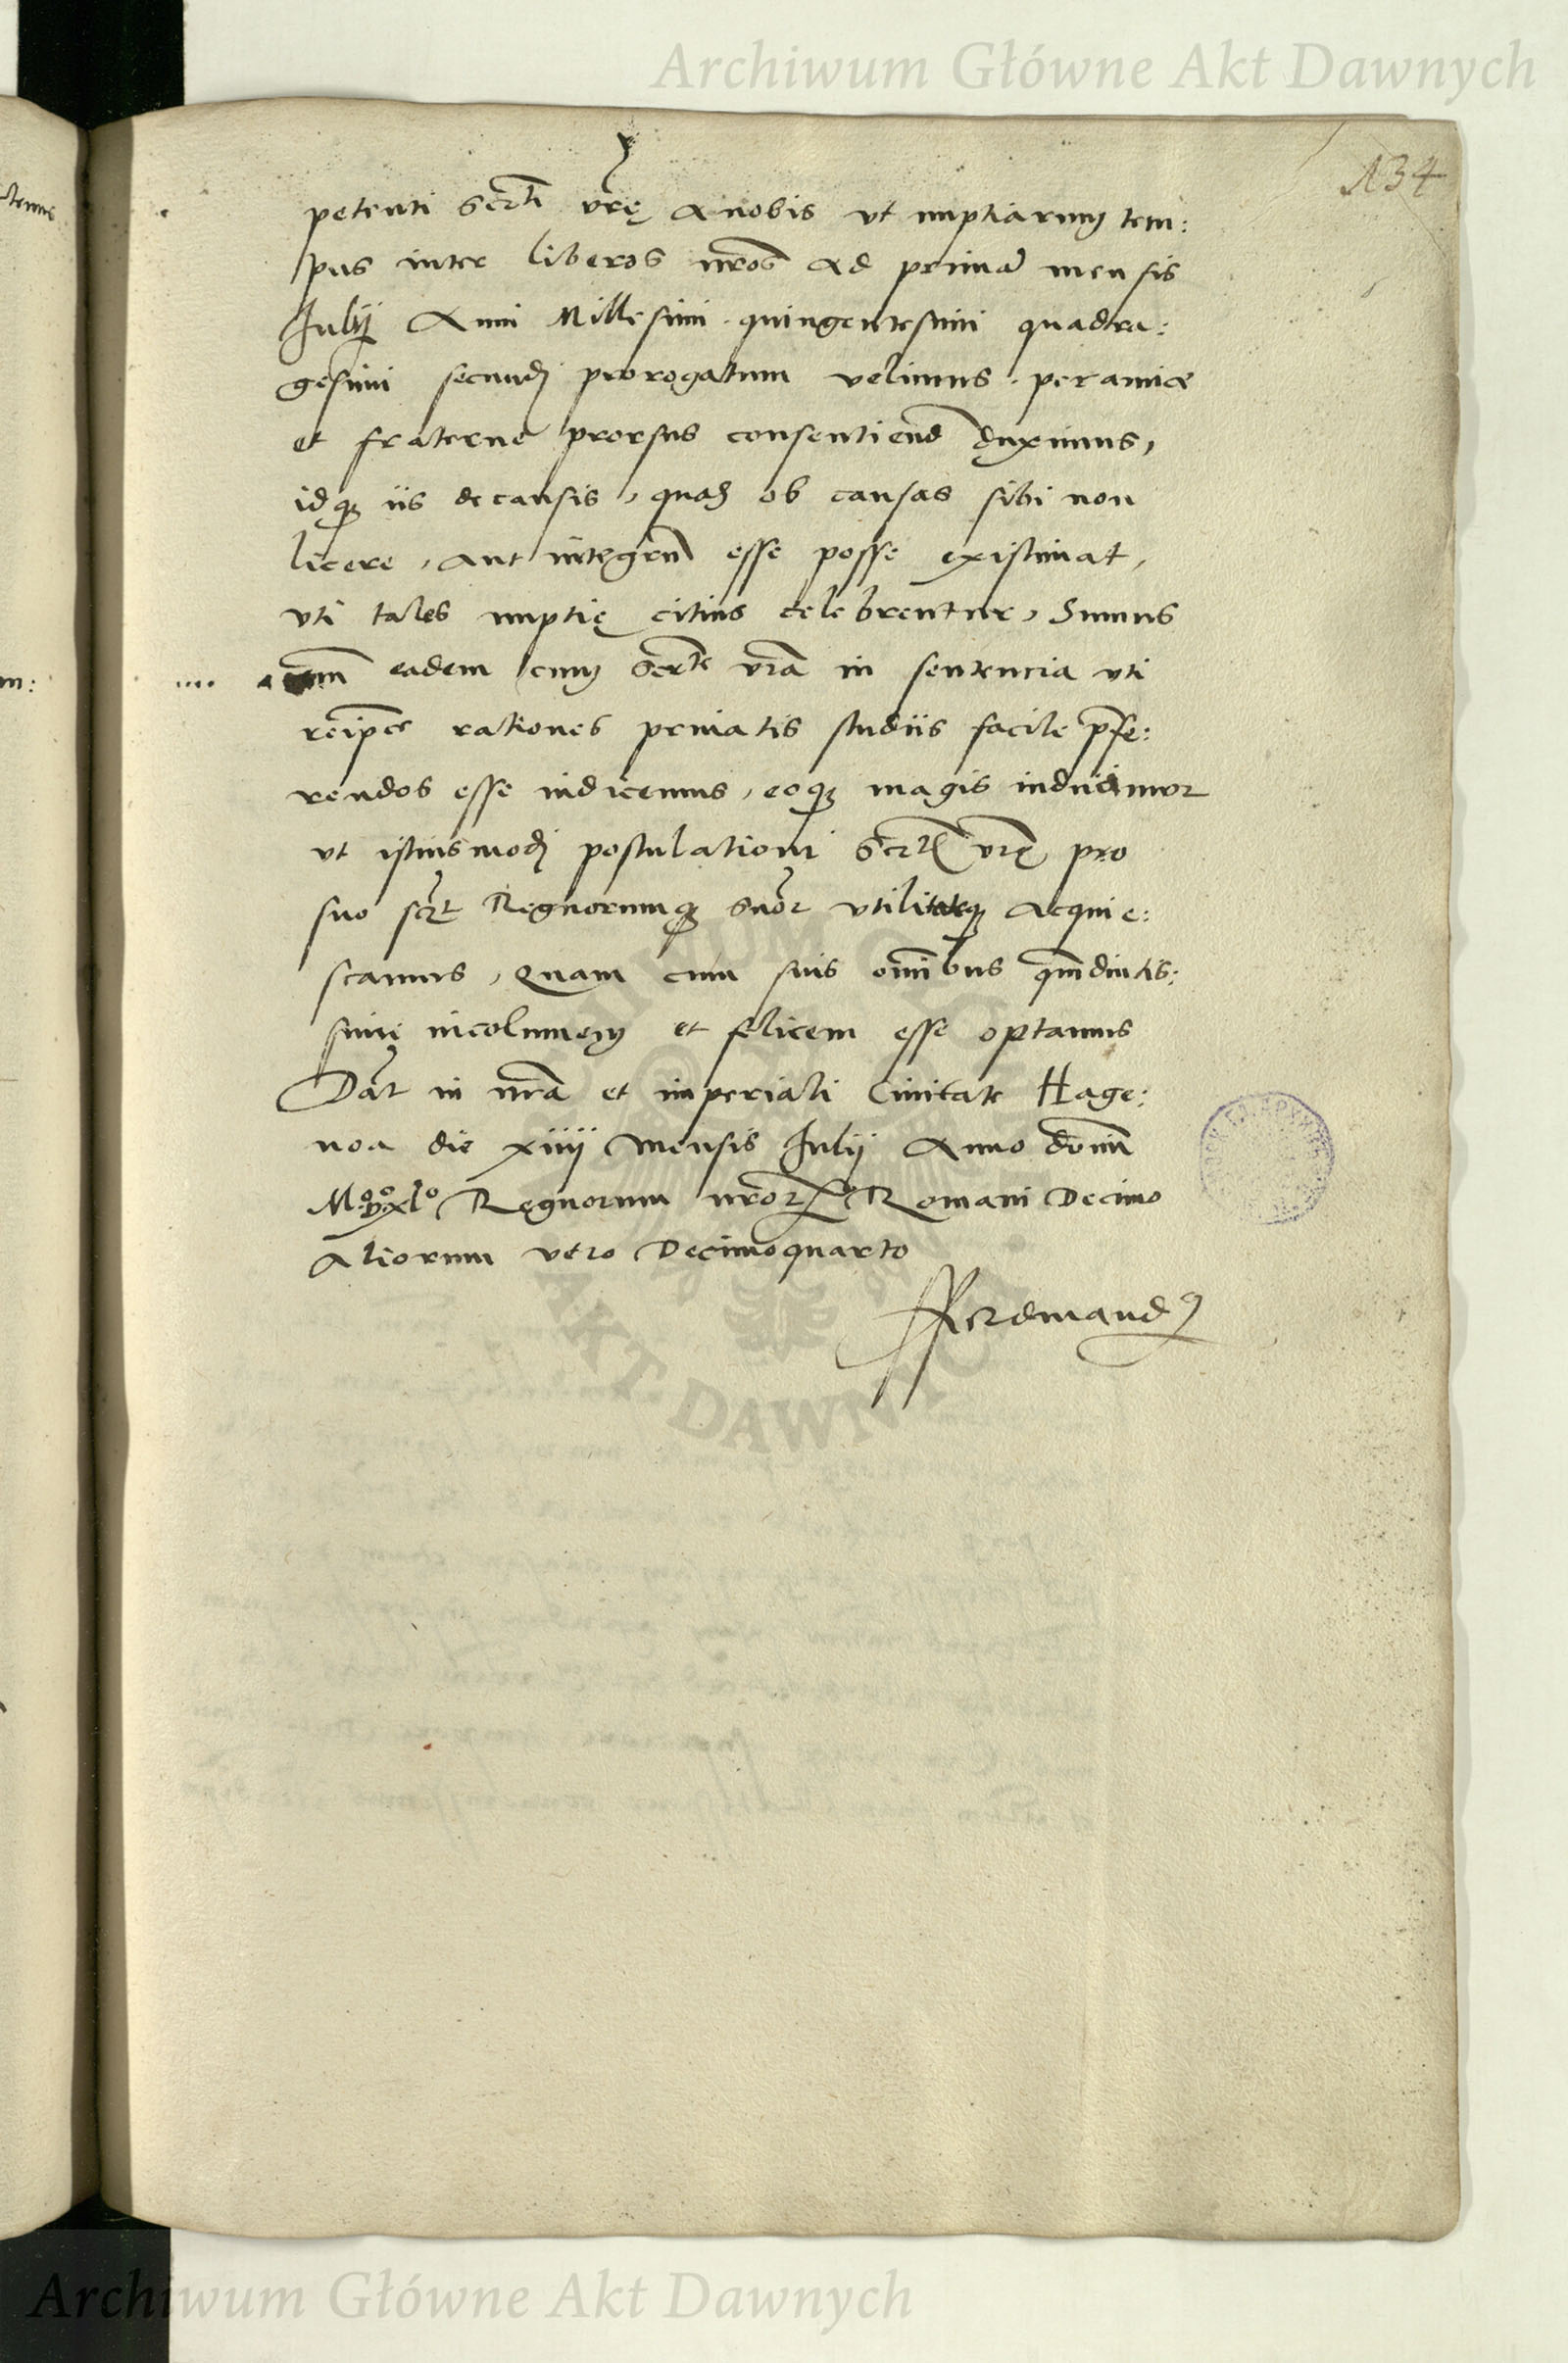 Archiwum Główne Akt Dawnych
134
petenti Sertti vrę a nobis vt nuptiarum tem:
pus inter liberos nros ad primā mensis
Julij Anni Millesimi quingentesimi quadra:
gesimi secundj prorogatum velimus. peramice
et fraterne prorsus consentiend duximus,
idq; iis de causis, quas ob causas sibi non
licere, aut integrū esse posse existimat,
vti tales nuptię citius celebrentur, Sumus
eadem cum Serte vra in sentencia vti
reipce rationes priuatis studiis facile pfe:
rendos esse iudicemus, eoq; magis inducimur
vt istiusmodj postulationi Sertis vrę pro
suo Regnorumq; suor vtilitateq; acquie:
scamus, Quam cum suis omnibus qmdiutis:
sime incolumem et felicem esse optamus
Dat in nra et imperiali Ciuitate Hage:
noa die xiiij mensis Julij Anno domini
M.° v.° xl° Regnorum nror Romani Decimo
Aliorum vero Decimoquarto
Ferdinand9
Archiwum Główne Akt Dawnych